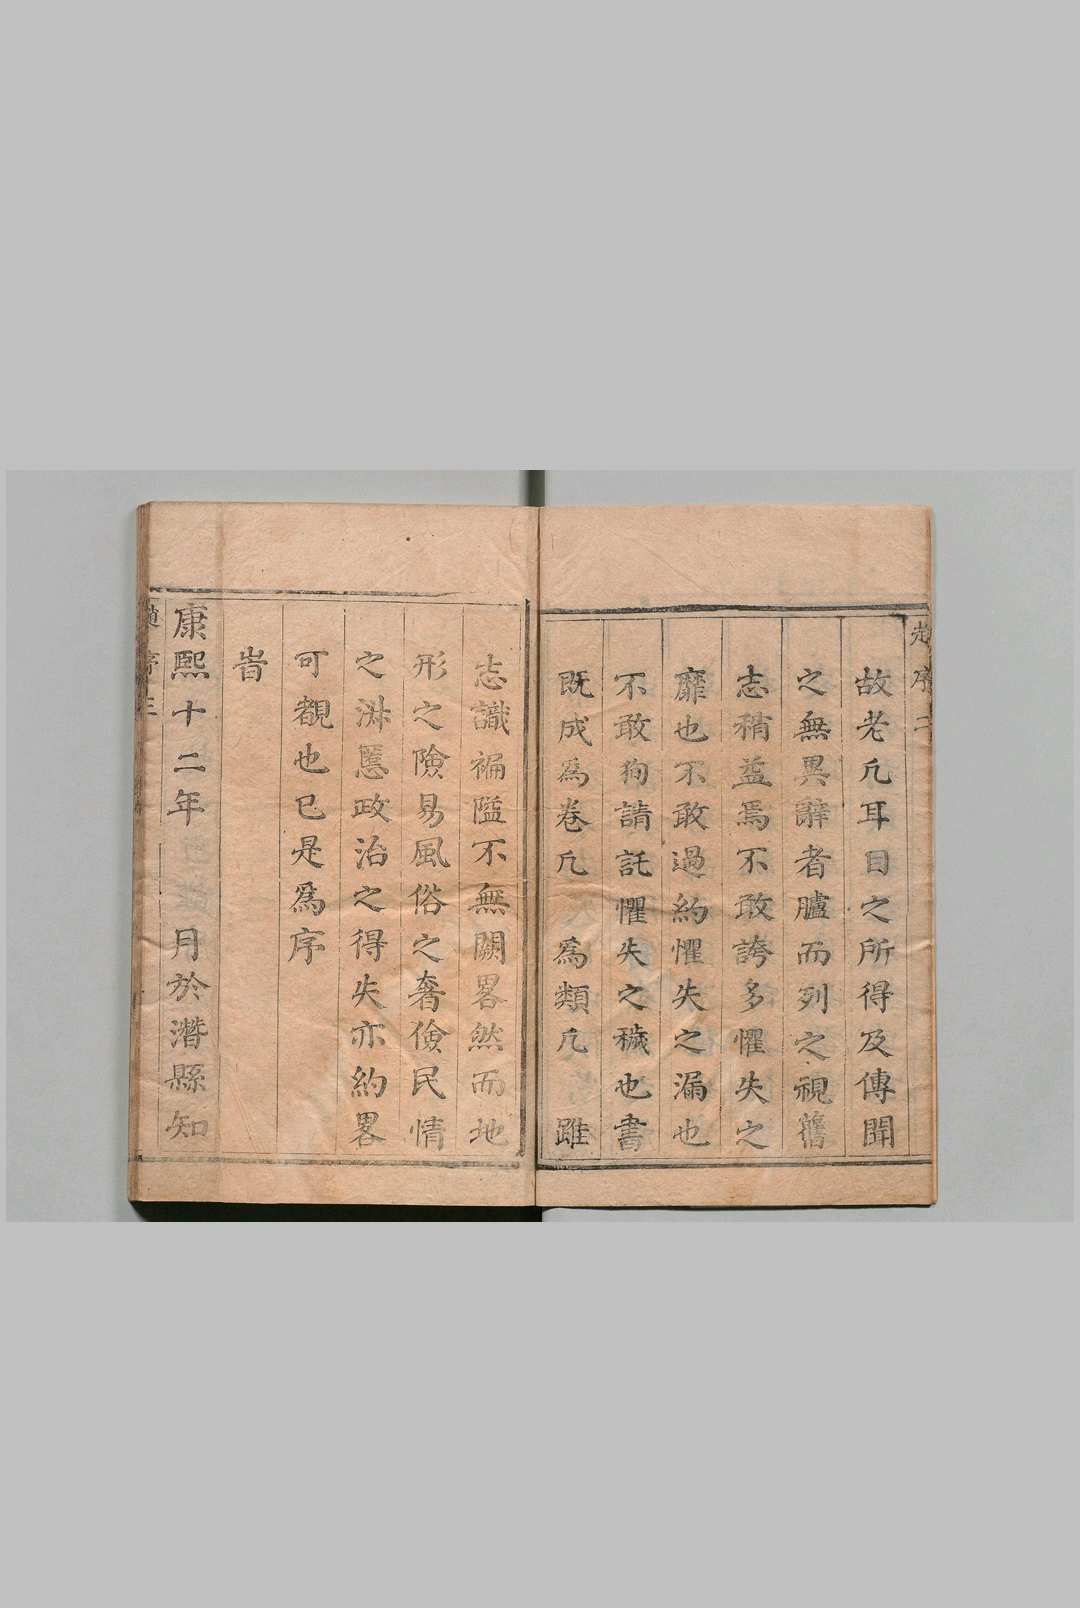 趙序 二
故老凡耳目之所得及傳聞
之無異辭者臚而列之視舊
志稍益焉不敢誇多懼失之
靡也不敢過約懼失之漏也
不敢狥請託懼失之穢也書
既成爲卷凡 爲類凡 雖
志識褊隘不無闕畧然而地
形之險易風俗之奢儉民情
之淋慝政治之得失亦約畧
可覩也已是爲序
旹
康熙十二年 月於濳縣知
趙序 三